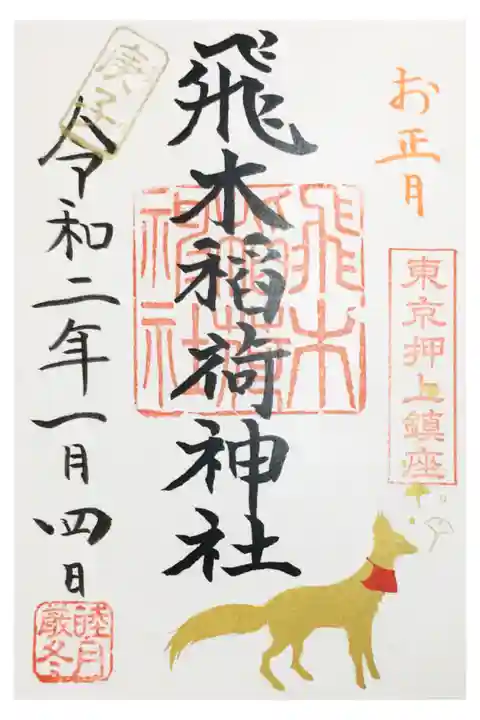 お正月
東京押上鎮座
飛木稲荷神社
飛木稲荷神社
庚子
令和二年一月四日
睦月
厳冬